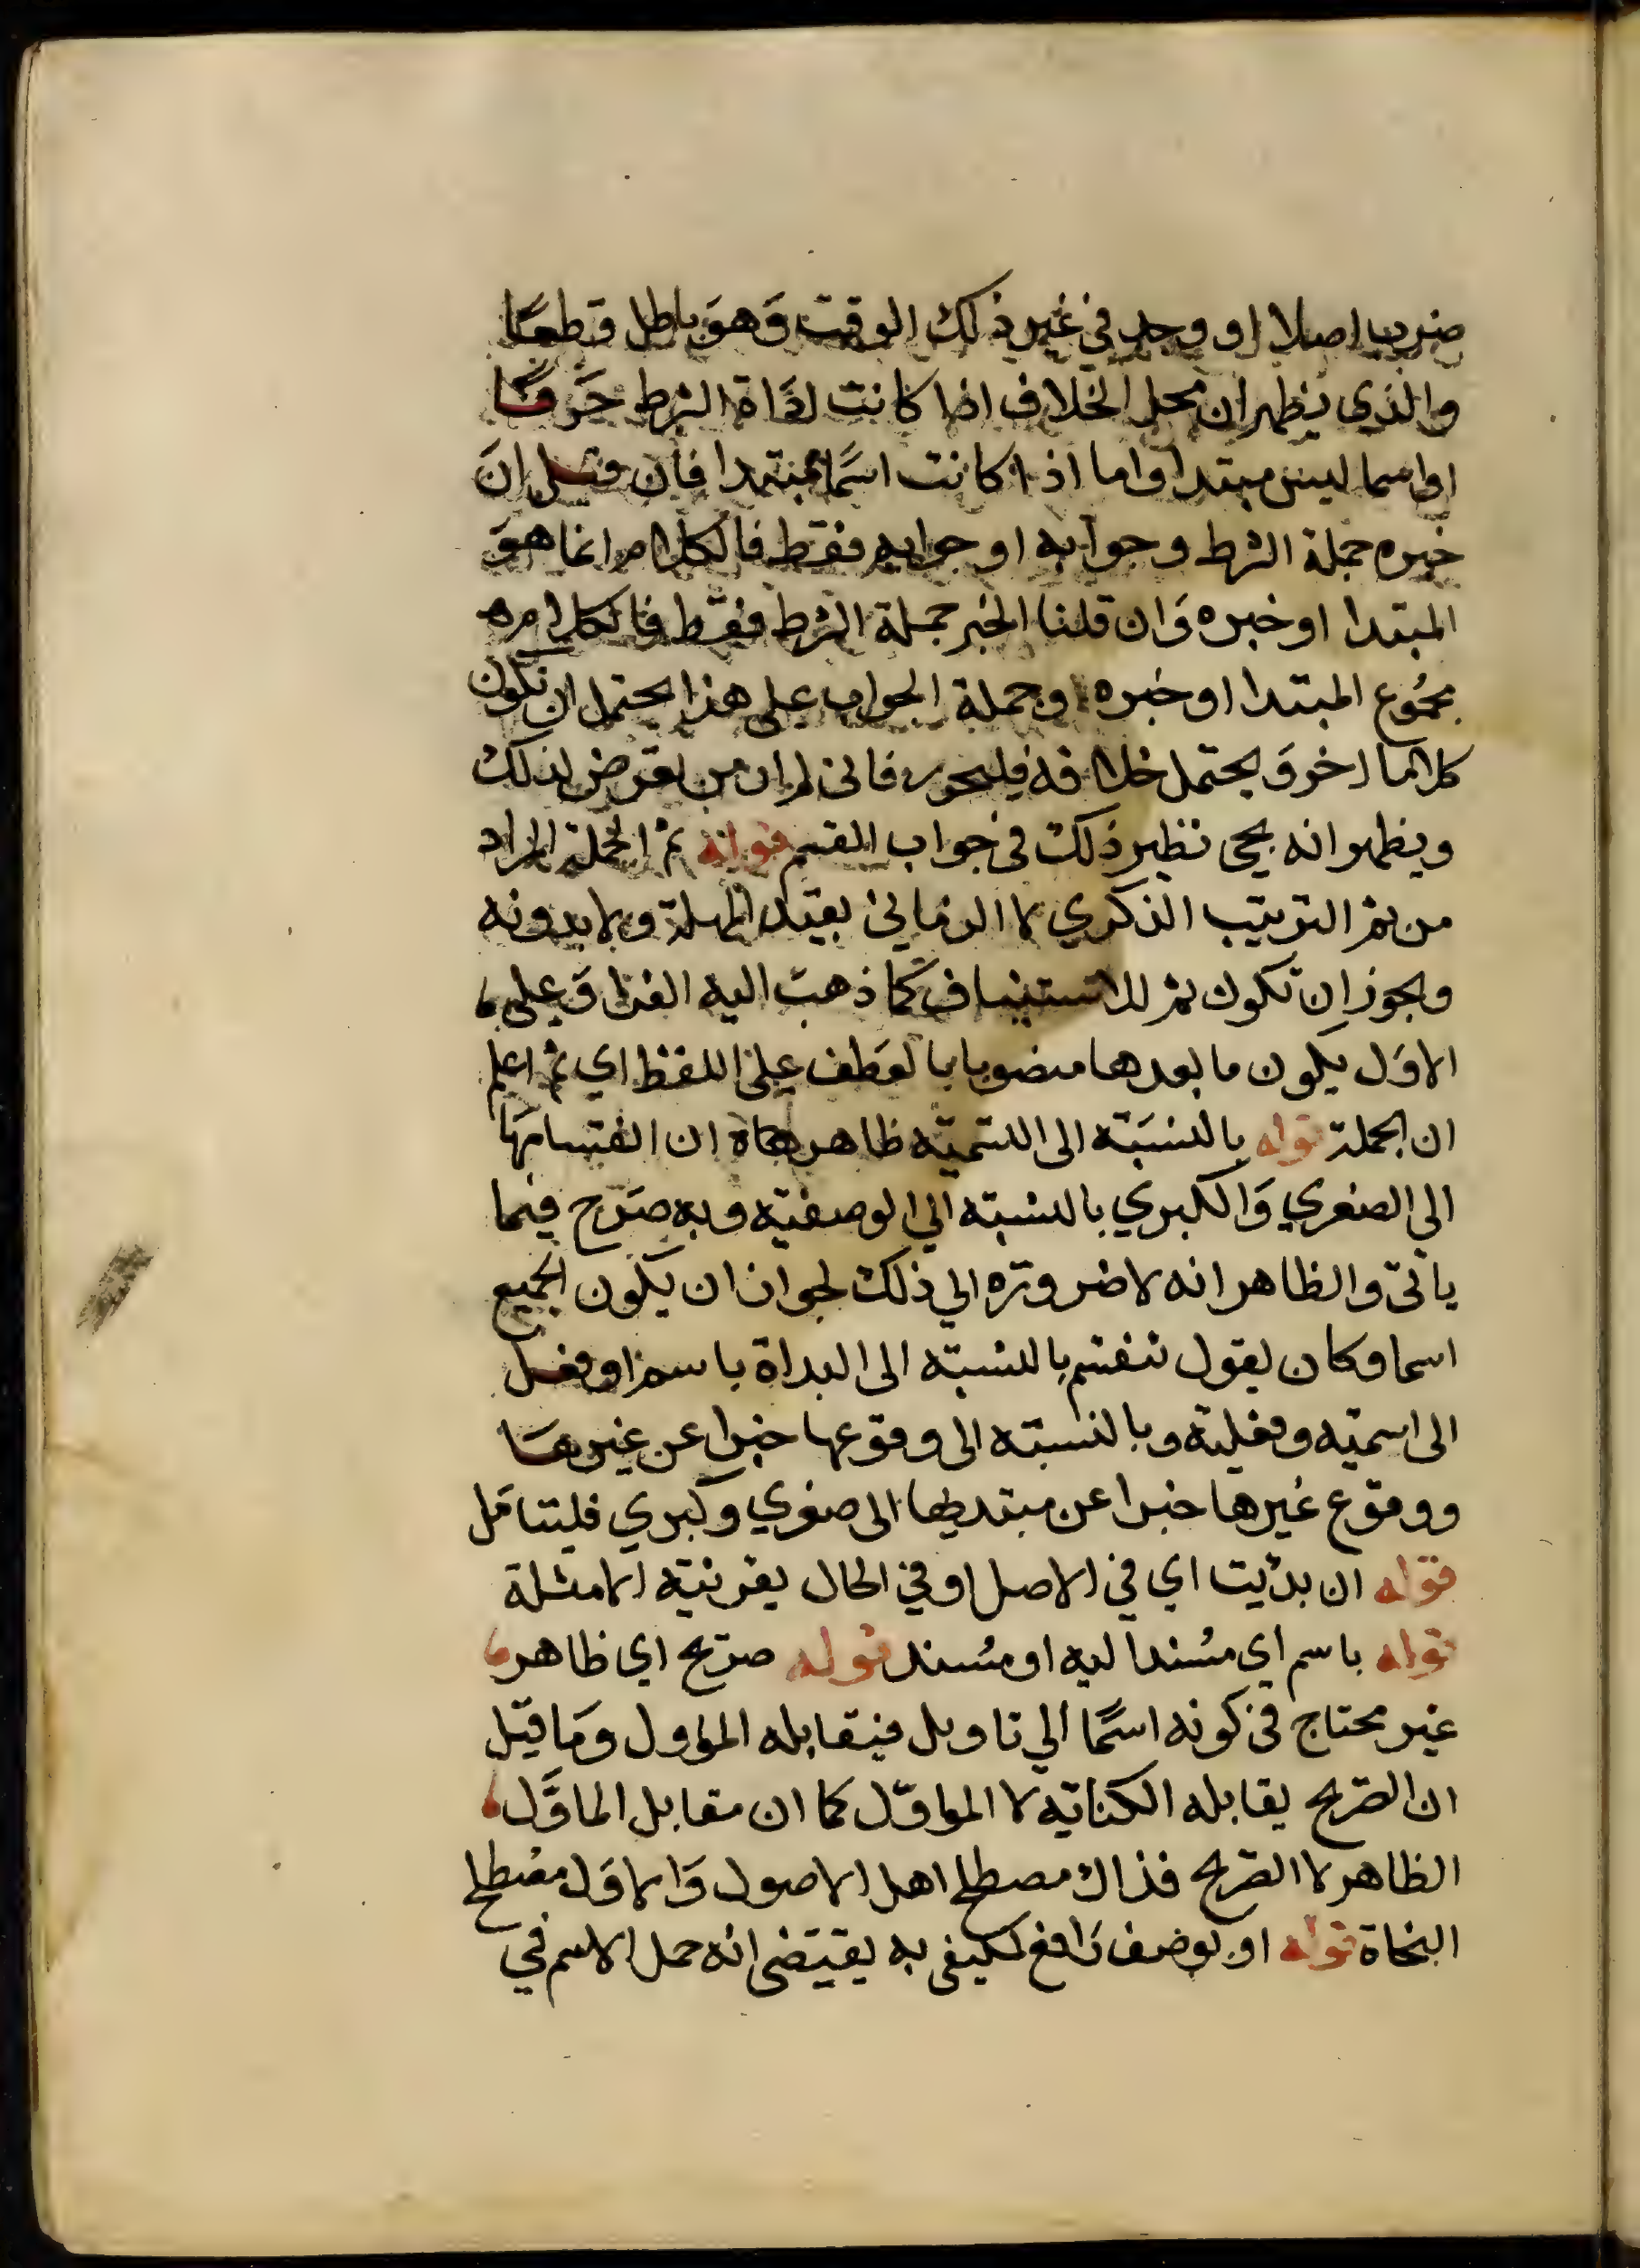 ضرب اصلا او وجد في غير ذلك الوقت وَهوَ باطل قطعًا
والذي يظهر ان محل الخلاف اذا كانت اداة الشرط حَرفًا
او اسما ليس مبتدا واما اذا كانت اسمًا مبتدا فان قيل ان
خبره جملة الشرط وجوابه او جوابه فقط فالكلام انما هوَ
المبتدا او خبره وَان قلنا الخبر جملة الشرط فقط فالكلام
مجموع المبتدا او خبره وجملة الجواب على هذا يحتمل ان تكون
كلاما اخر وَيحتمل خلافه فليحرر فاني لم ار من تعرض لذلك
ويظهر انه يجي نظير ذلك في جواب القسم قوله ثم الجملة المراد
من ثم الترتيب الذكري لا الزماني بقيد المهلة ولا بدونه
ويجوز ان تكون ثم للاستيناف كما ذهب اليه الفرا وَعلى
الاوَل يكون ما بعدها منصوبا بالعَطف على اللفظ اي ثم اعلم
ان الجملة قوله بالنسبَة الى التسمية ظاهر ان انقسامهَا
الى الصغري وَالكبري بالنسبة الي الوصفية وبه صَرح فيما
ياتي والظاهر انه لا ضرورة الي ذلك لجواز ان يكون الجميع
اسما وكان يقول تنقسم بالنسبة الى البداة باسم او فعل
الى اسمية وفعلية وبالنسبة الى وقوعها خبرا عن غيرهَا
ووقوع غيرها خبرا عن مبتديها الى صغري وكبري فليتامَل
قوله ان بدئت اي في الاصل او في الحال بقرينة الامثلة
قوله باسم اي مسُندا اليه او مسُند قوله صريح اي ظاهر
غير محتاج في كونه اسمًا الي تاويل فيقابله المؤول وَما قيل
ان الصَريح يقابله الكناية لا المواوّل كما ان مقابل الماوَّل
الظاهر لا الصَريح فذاك مصطلح اهل الاصول وَالاوَل مصْطلح
النحاة قوله او بوصف رَافع لمكتفى به يقتضى انه حمل الاسم في